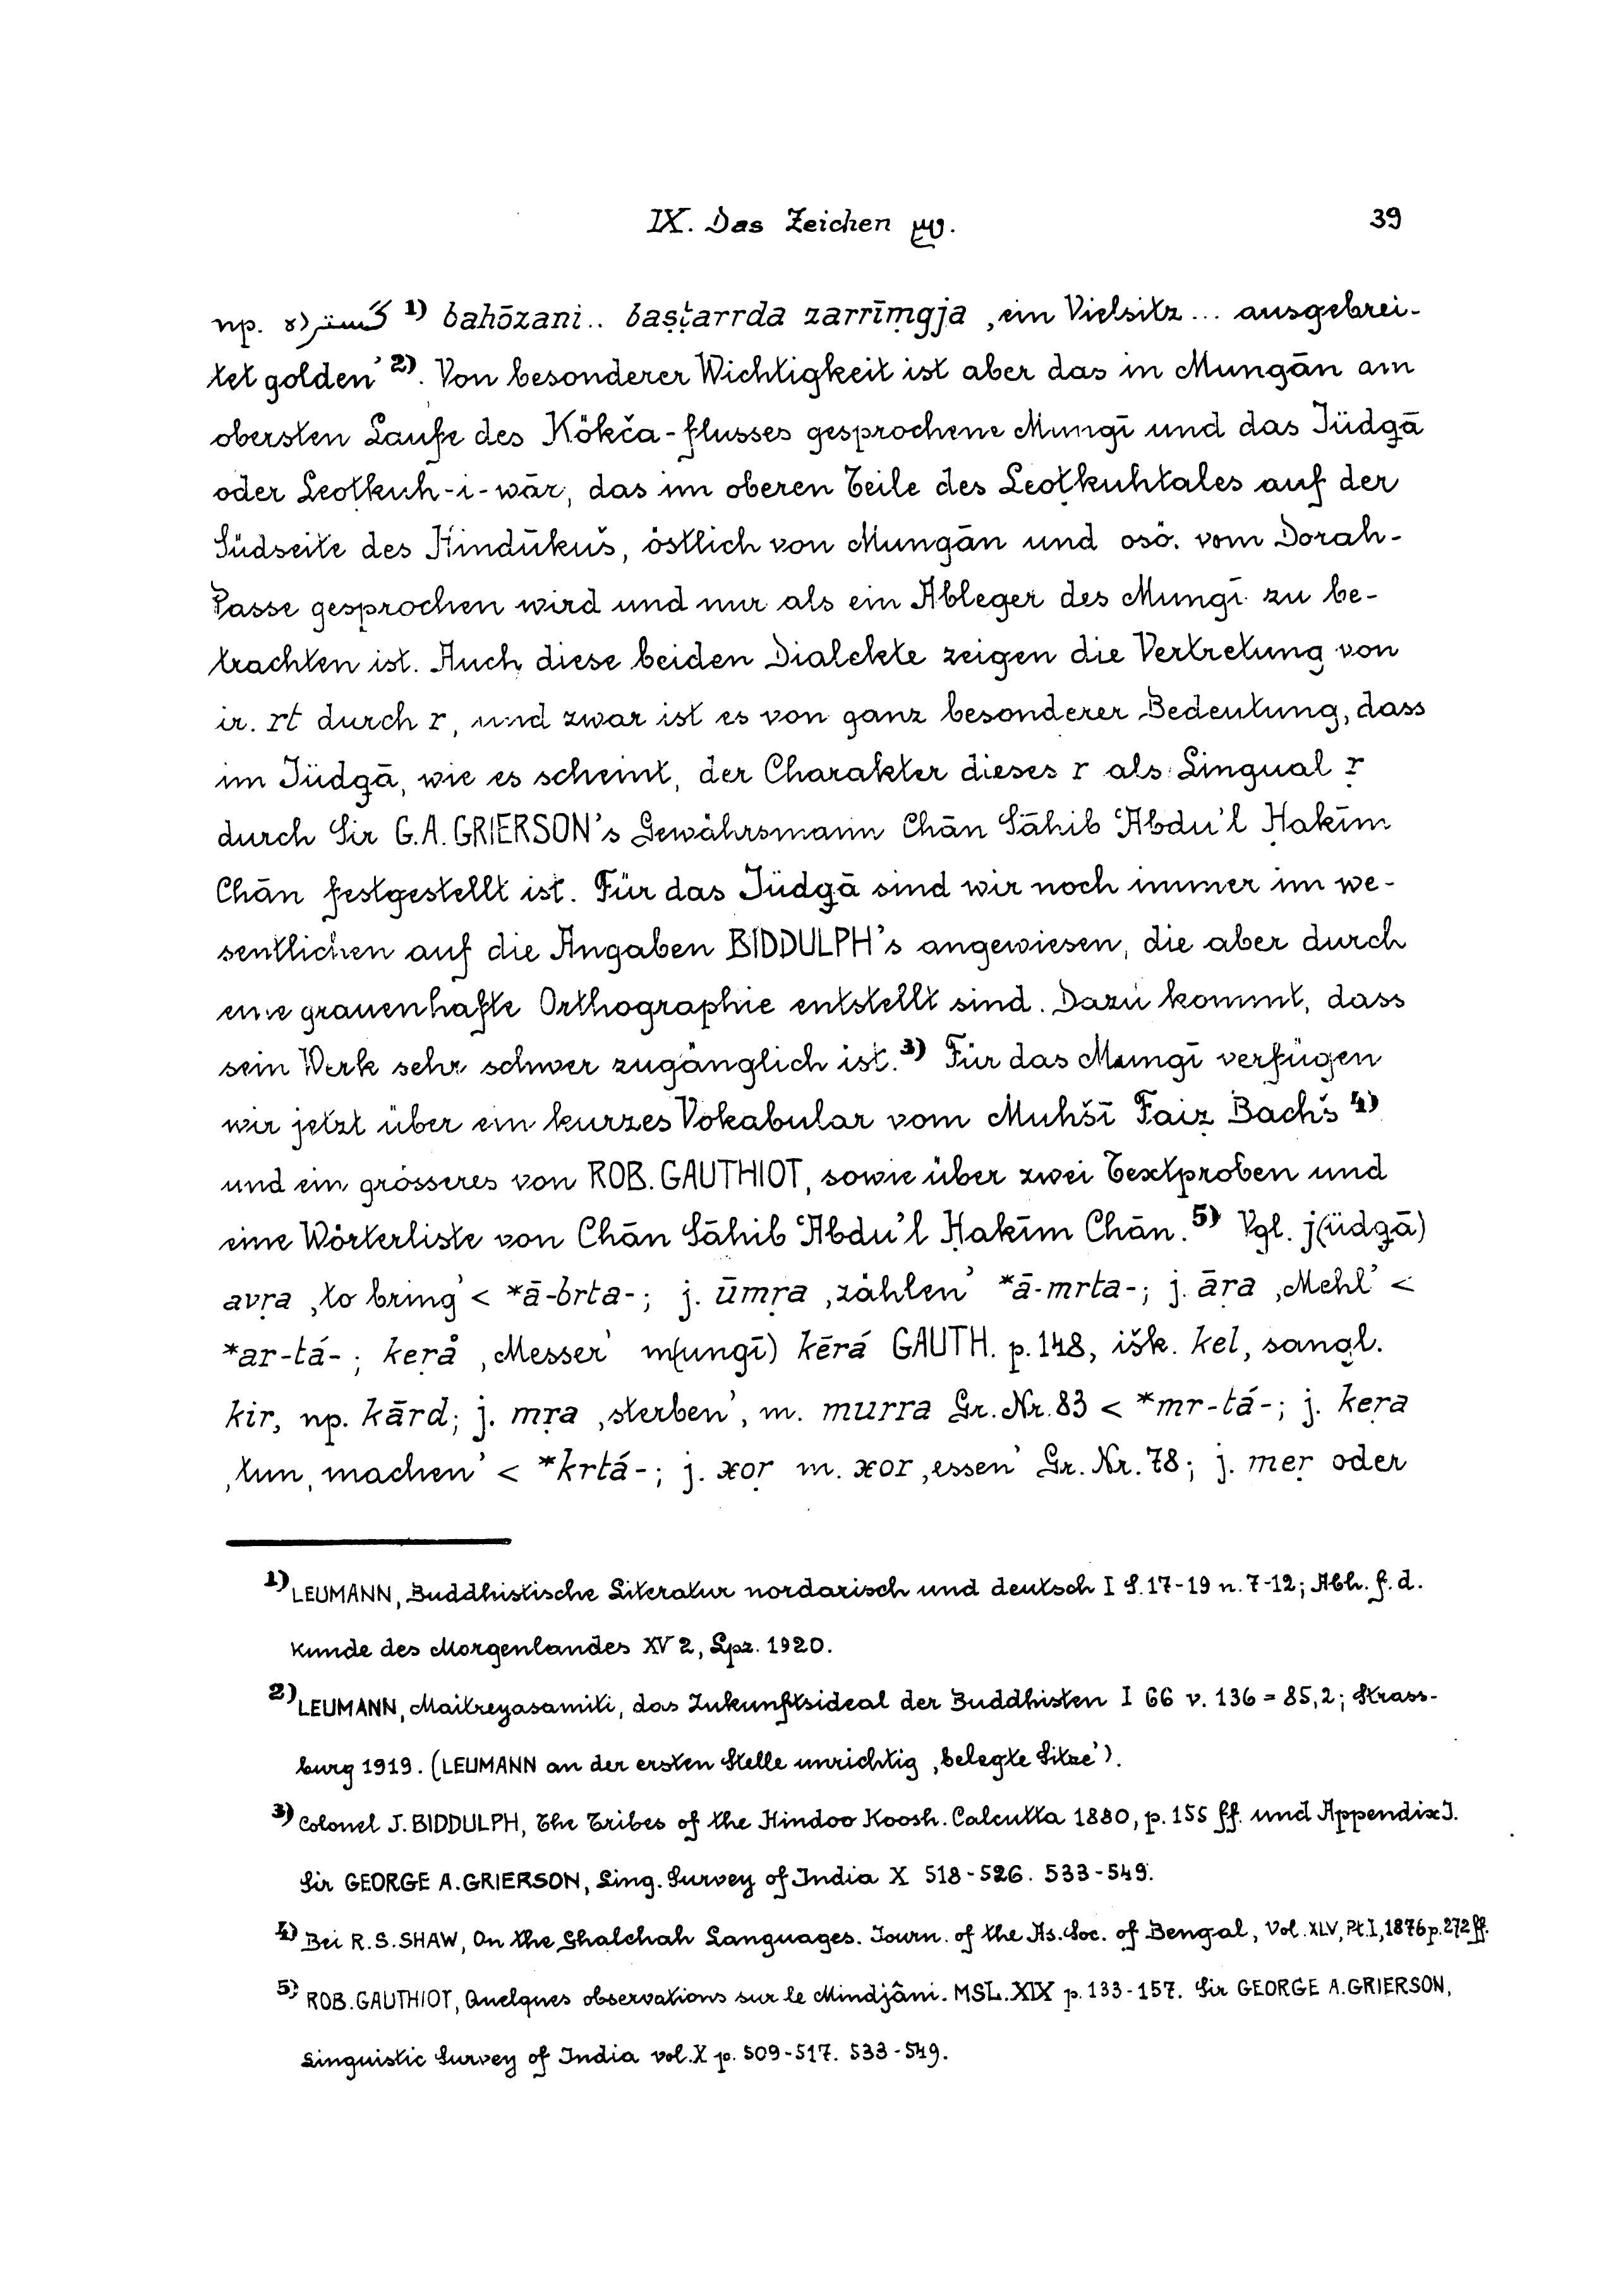 IX. Das Zeichen 39
np. گسترده 1) bahōzani.. baṣṭarrda zarrīṃgja ‚ein Vielsitz... ausgebrei-
tet golden’ 2). Von besonderer Wichtigkeit ist aber das in Mungān am
obersten Laufe des Kökča-flusses gesprochene Mungī und das Jüdgā
oder Leoṭkuh-i-wār, das im oberen Teile des Leoṭkuhtales auf der
Südseite des Hindūkuš, östlich von Mungān und osö. vom Dorah-
Passe gesprochen wird und nur als ein Ableger des Mungī zu be-
trachten ist. Auch diese beiden Dialekte zeigen die Vertretung von
ir. rt durch r, und zwar ist es von ganz besonderer Bedeutung, dass
im Jüdgā, wie es scheint, der Charakter dieses r als Lingual ṛ
durch Sir G.A. GRIERSON’s Gewährsmann Chān Sāhib ‘Abdu’l Ḥakīm
Chān festgestellt ist. Für das Jüdgā sind wir noch immer im we-
sentlichen auf die Angaben BIDDULPH’s angewiesen, die aber durch
eine grauenhafte Orthographie entstellt sind. Dazu kommt, dass
sein Werk sehr schwer zugänglich ist.3) Für das Mungī verfügen
wir jetzt über ein kurzes Vokabular vom Muhšī Faiẓ Bachš 4)
und ein grösseres von ROB. GAUTHIOT, sowie über zwei Textproben und
eine Wörterliste von Chān Sāhib ‘Abdu’l Ḥakīm Chān.5) Vgl. j(üdgā)
avṛa ‚to bring’ < *ā-brta-; j. ūmṛa ‚zählen’ *ā-mrta-; j. āṛa ‚Mehl’ <
*ar-tá-; keṛå ‚Messer’ m(ungī) kērá GAUTH. p. 148, išk. kel, sangl.
kir, np. kārd; j. mṛa ‚sterben’, m. murra Gr. Nr. 83 < *mr-tá-; j. keṛa
‚tun, machen’ < *krtá-; j. xoṛ m. xor ‚essen’ Gr. Nr. 78; j. meṛ oder
1) LEUMANN, Buddhistische Literatur nordarisch und deutsch I S. 17-19 n. 7-12; Abh. f. d.
Kunde des Morgenlandes XV 2, Lpz. 1920.
2) LEUMANN, Maitreyasamiti, das Zukunftsideal der Buddhisten I 66 v. 136 = 85,2; Strass-
burg 1919. (LEUMANN an der ersten Stelle unrichtig ‚belegte Sitze’).
3) Colonel J. BIDDULPH, The Tribes of the Hindoo Koosh. Calcutta 1880, p. 155 ff. und Appendix J.
Sir GEORGE A. GRIERSON, Ling. Survey of India X 518-526. 533-549.
4) Bei R. S. SHAW, On the Ghalchah Languages. Journ. of the As. Soc. of Bengal, Vol. XLV, Pt. I, 1876 p. 272 ff.
5) ROB. GAUTHIOT, Quelques observations sur le Mindjâni. MSL. XIX p. 133-157. Sir GEORGE A. GRIERSON,
Linguistic Survey of India vol. X p. 509-517. 533-549.